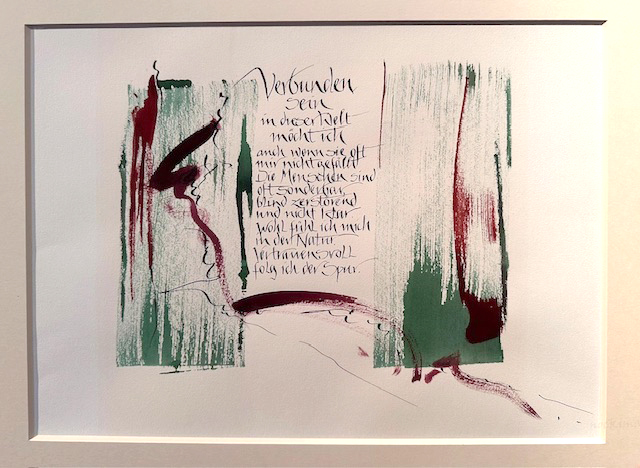 Verbunden
sein
in dieser Welt
möcht ich
auch wenn sie oft
mir nicht gefällt
Die Menschen sind
oft sonderbar,
blind zerstörend
und nicht klar
wohl fühl ich mich
in der Natur
vertrauensvoll
folg ich der Spur.